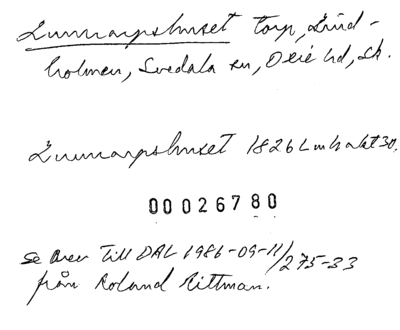 Lunnarpshuset torp, Lind-
holmen, Svedala sn, Oxie hd, Sk.
Lunnarpshuset 1826 Lmh akt 30.
00026780
se brev till DAL 1986-09-11/275-33
från Roland Rittman.